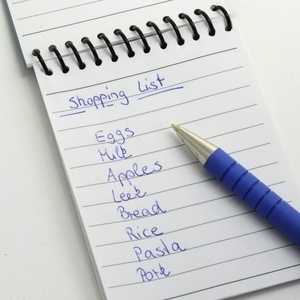 Shopping List
Eggs
Milk
Apples
Leek
Bread
Rice
Pasta
Pork